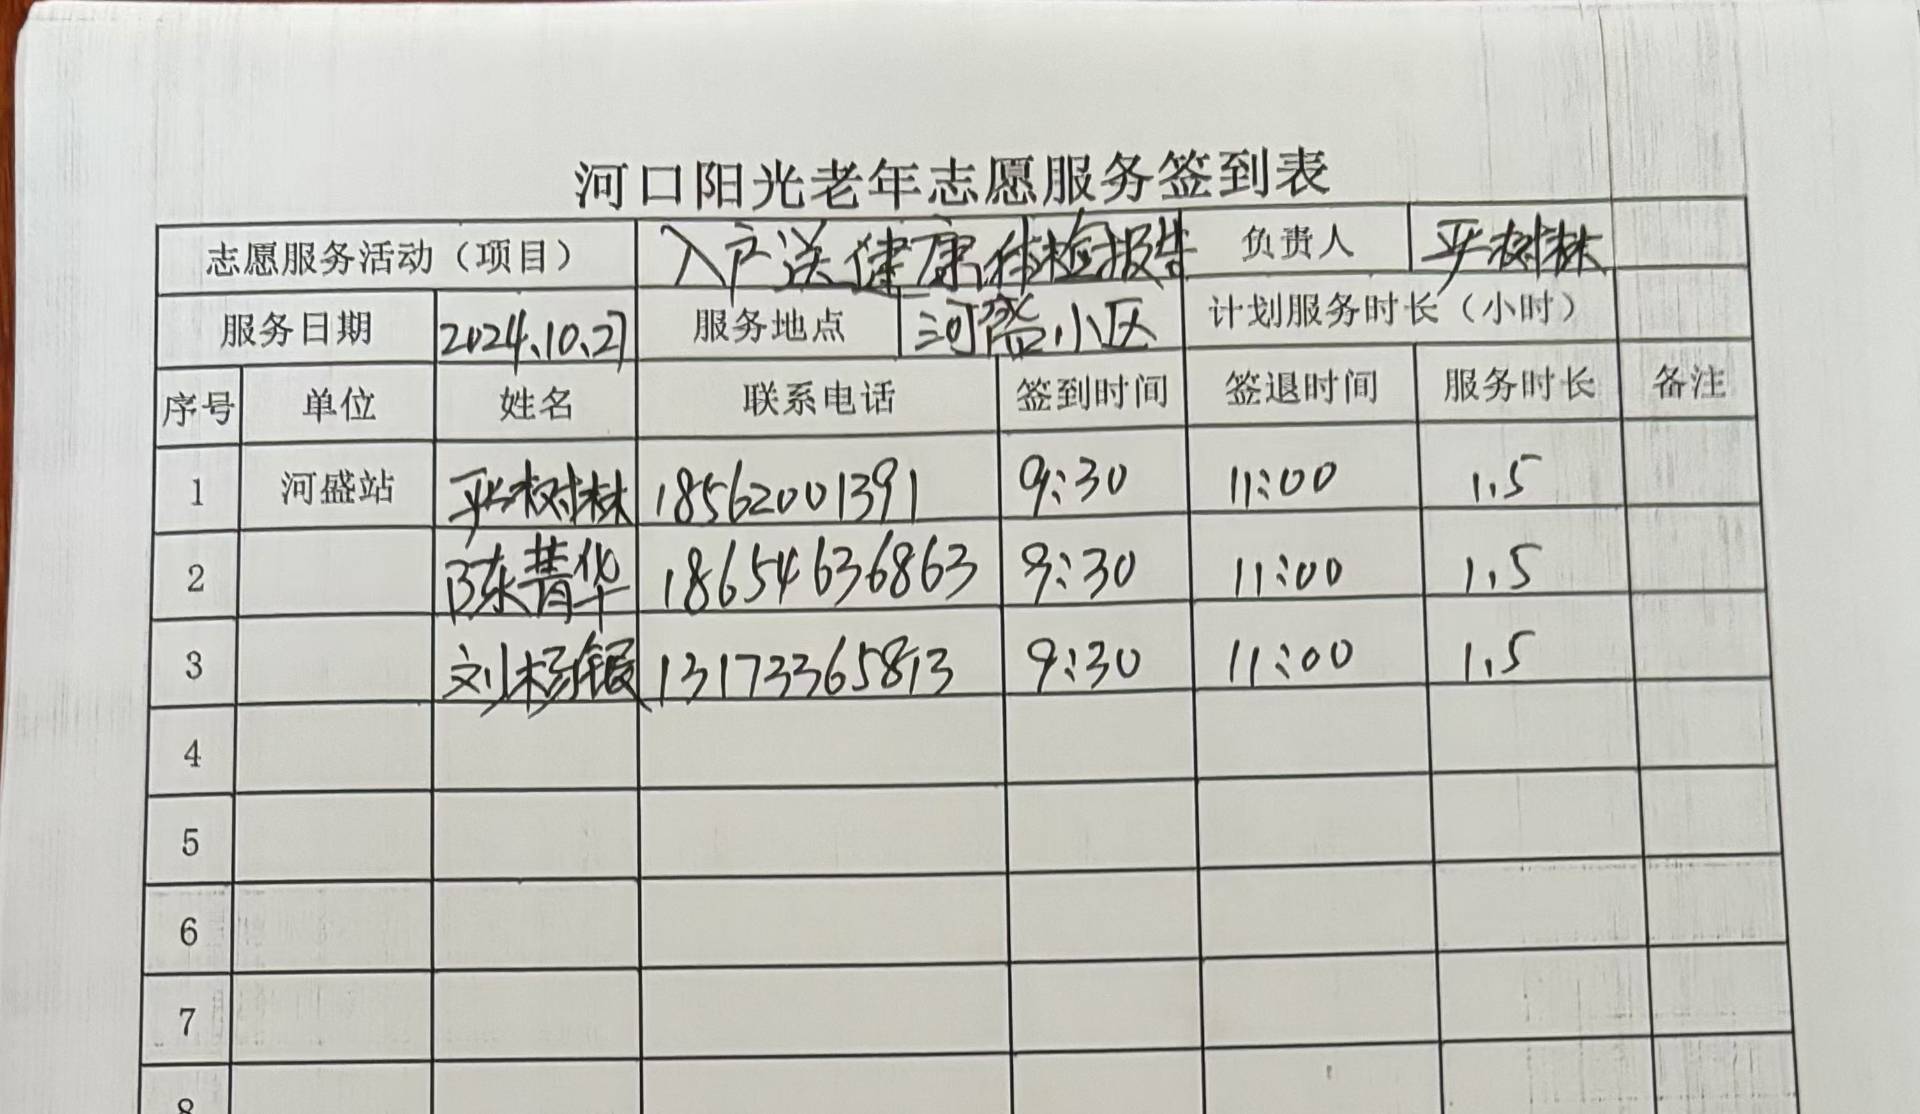 河口阳光老年志愿服务签到表
志愿服务活动（项目） 入户送健康体检报告 负责人 严树林
服务日期 2024.10.27 服务地点 河盛小区 计划服务时长（小时）
序号 单位 姓名 联系电话 签到时间 签退时间 服务时长 备注
1 河盛站 严树林 18562001391 9:30 11:00 1.5
2 陈菁华 18654636863 9:30 11:00 1.5
3 刘杨银 13173365813 9:30 11:00 1.5
4
5
6
7
8